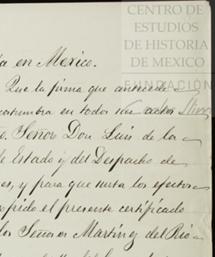 CENTRO DE
ESTUDIOS
DE HISTORIA
DE MEXICO
FUNDACIÓN
en Mexico.
Que la firma que antecede
costumbra en todos sus actos
Señor Don Luis de la
de Estado y del Despacho de
es, y para que surta los efectos
el presente certificado
los Señores Martinez del Rio